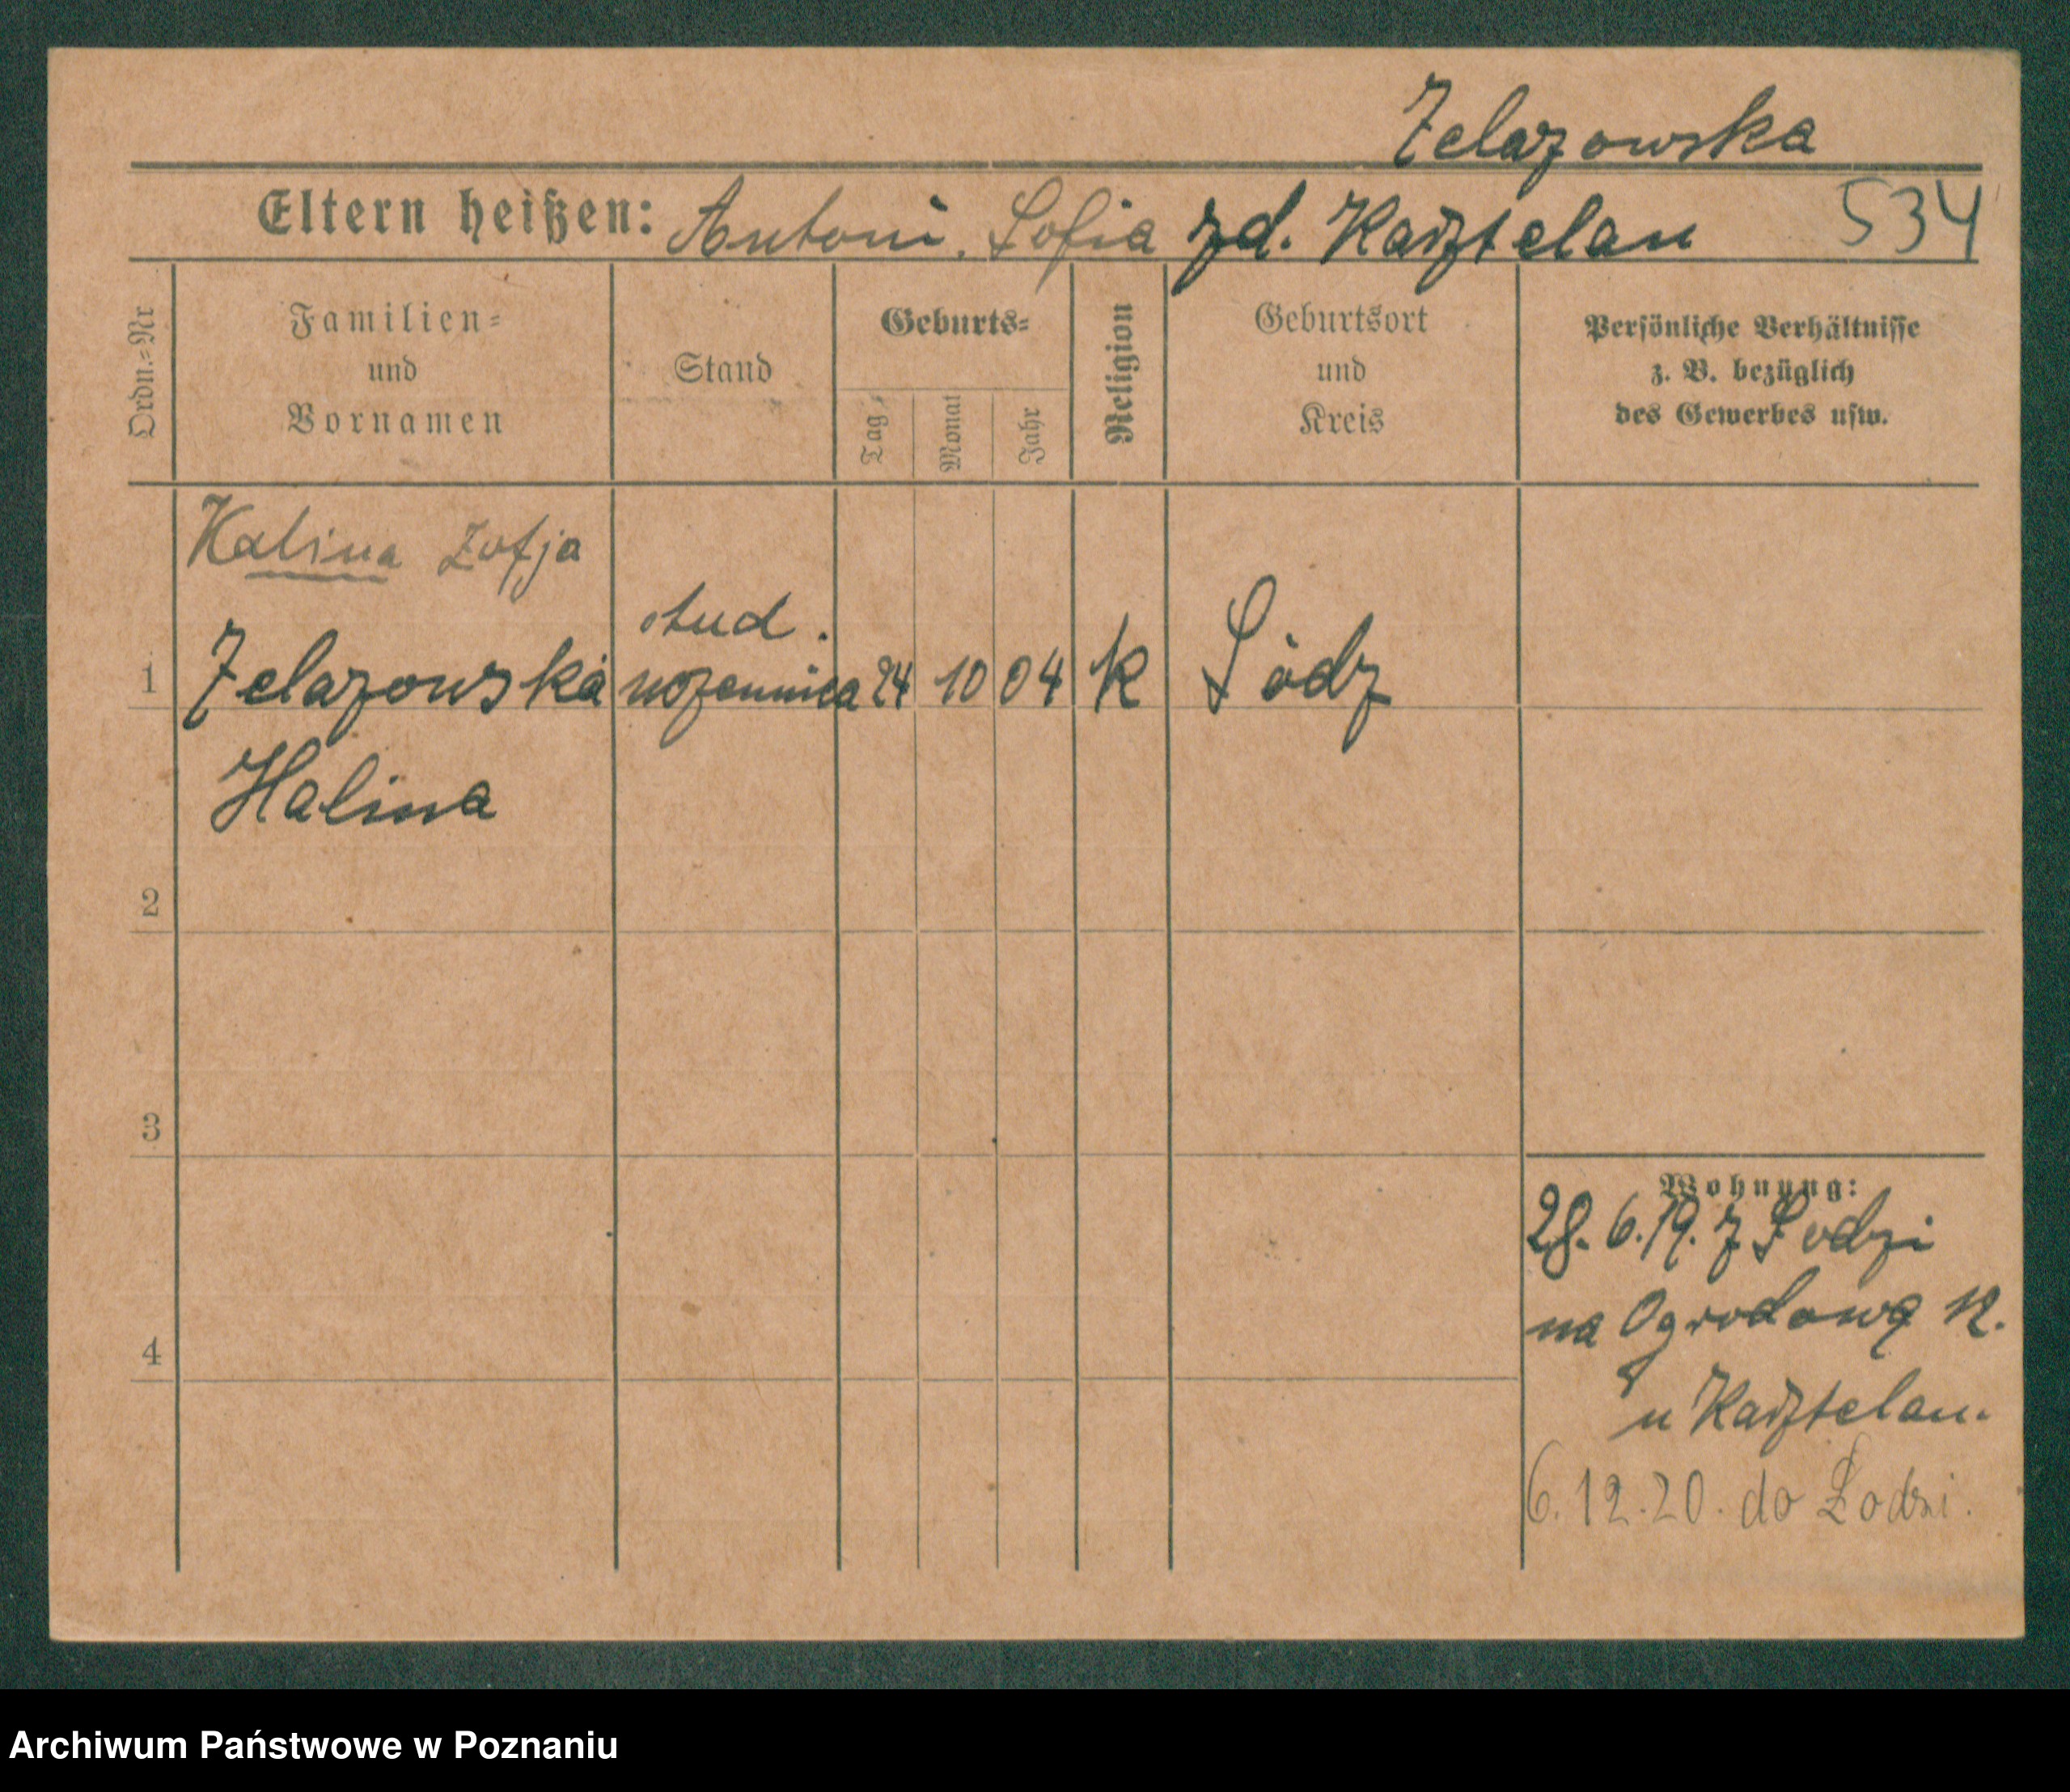 Zelazowska
Eltern heißen: Antoni, Zofia zd. Kasztelan 534
Ordn.=Nr
Familien=
und
Vornamen
Stand
Geburts=
Tag
Monat
Jahr
Religion
Geburtsort
und
Kreis
Persönliche Verhältnisse
z. B. bezüglich
des Gewerbes usw.
Halina Zofja
stud.
1 Zelazowska 24 10 04 k Łódz
Halina
2
3
4
Wohnung:
28.6.19. z Łodzi
na Ogrodową 12.
u Kasztelan.
6.12.20. do Łodzi.
Archiwum Państwowe w Poznaniu